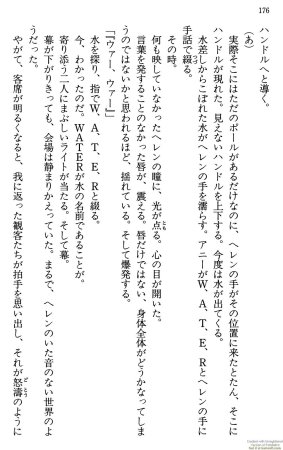 176
ハンドルへと導く。
（あ）
実際そこにはただのポールがあるだけなのに、ヘレンの手がその位置に来たとたん、そこに
ハンドルが現れた。見えないハンドルを上下する。今度は水が出てくる。
水差しからこぼれた水がヘレンの手を濡らす。アニーがＷ、Ａ、Ｔ、Ｅ、Ｒとヘレンの手に
手話で綴る。
その時。
何も映していなかったヘレンの瞳に、光が点る。心の目が開いた。
言葉を発することのなかった唇が、震える。唇だけではない、身体全体がどうかなってしま
うのではないかと思われるほど、揺れている。そして爆発する。
「『ウァー、ウァー』」
水を探り、指でＷ、Ａ、Ｔ、Ｅ、Ｒと綴る。
今、わかったのだ。ＷＡＴＥＲが水の名前であることが。
寄り添う二人にまぶしいライトが当たる。そして幕。
幕が下がりきっても、会場は静まりかえっていた。まるで、ヘレンのいた音のない世界のよ
うだった。
やがて、客席が明るくなると、我に返った観客たちが拍手を思い出し、それが怒濤のように